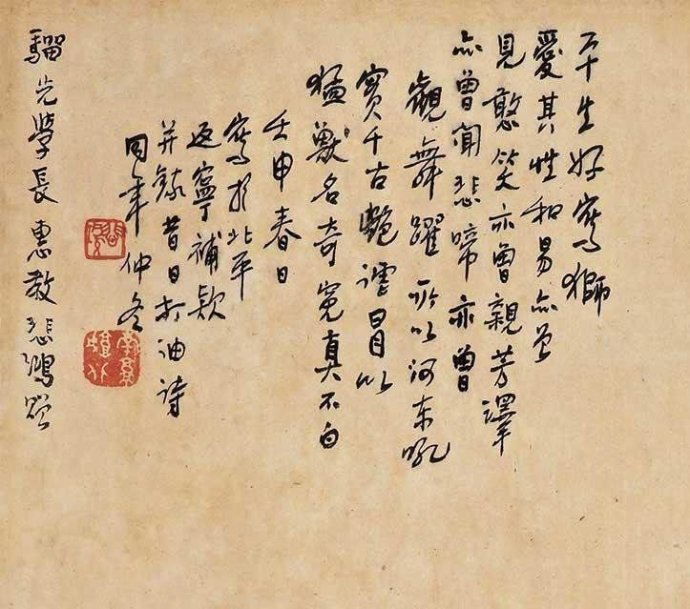 平生好寫獅
愛其性和易亦曾
見憨笑亦曾親芳澤
亦曾聞悲啼亦曾
觀舞躍所以河东吼
實千古艷謔冒以
猛獸名奇冤真不白
壬申春日
寫於北平
返寧補款
并錄昔日打油詩
同年仲冬
騮先學長惠教悲鴻